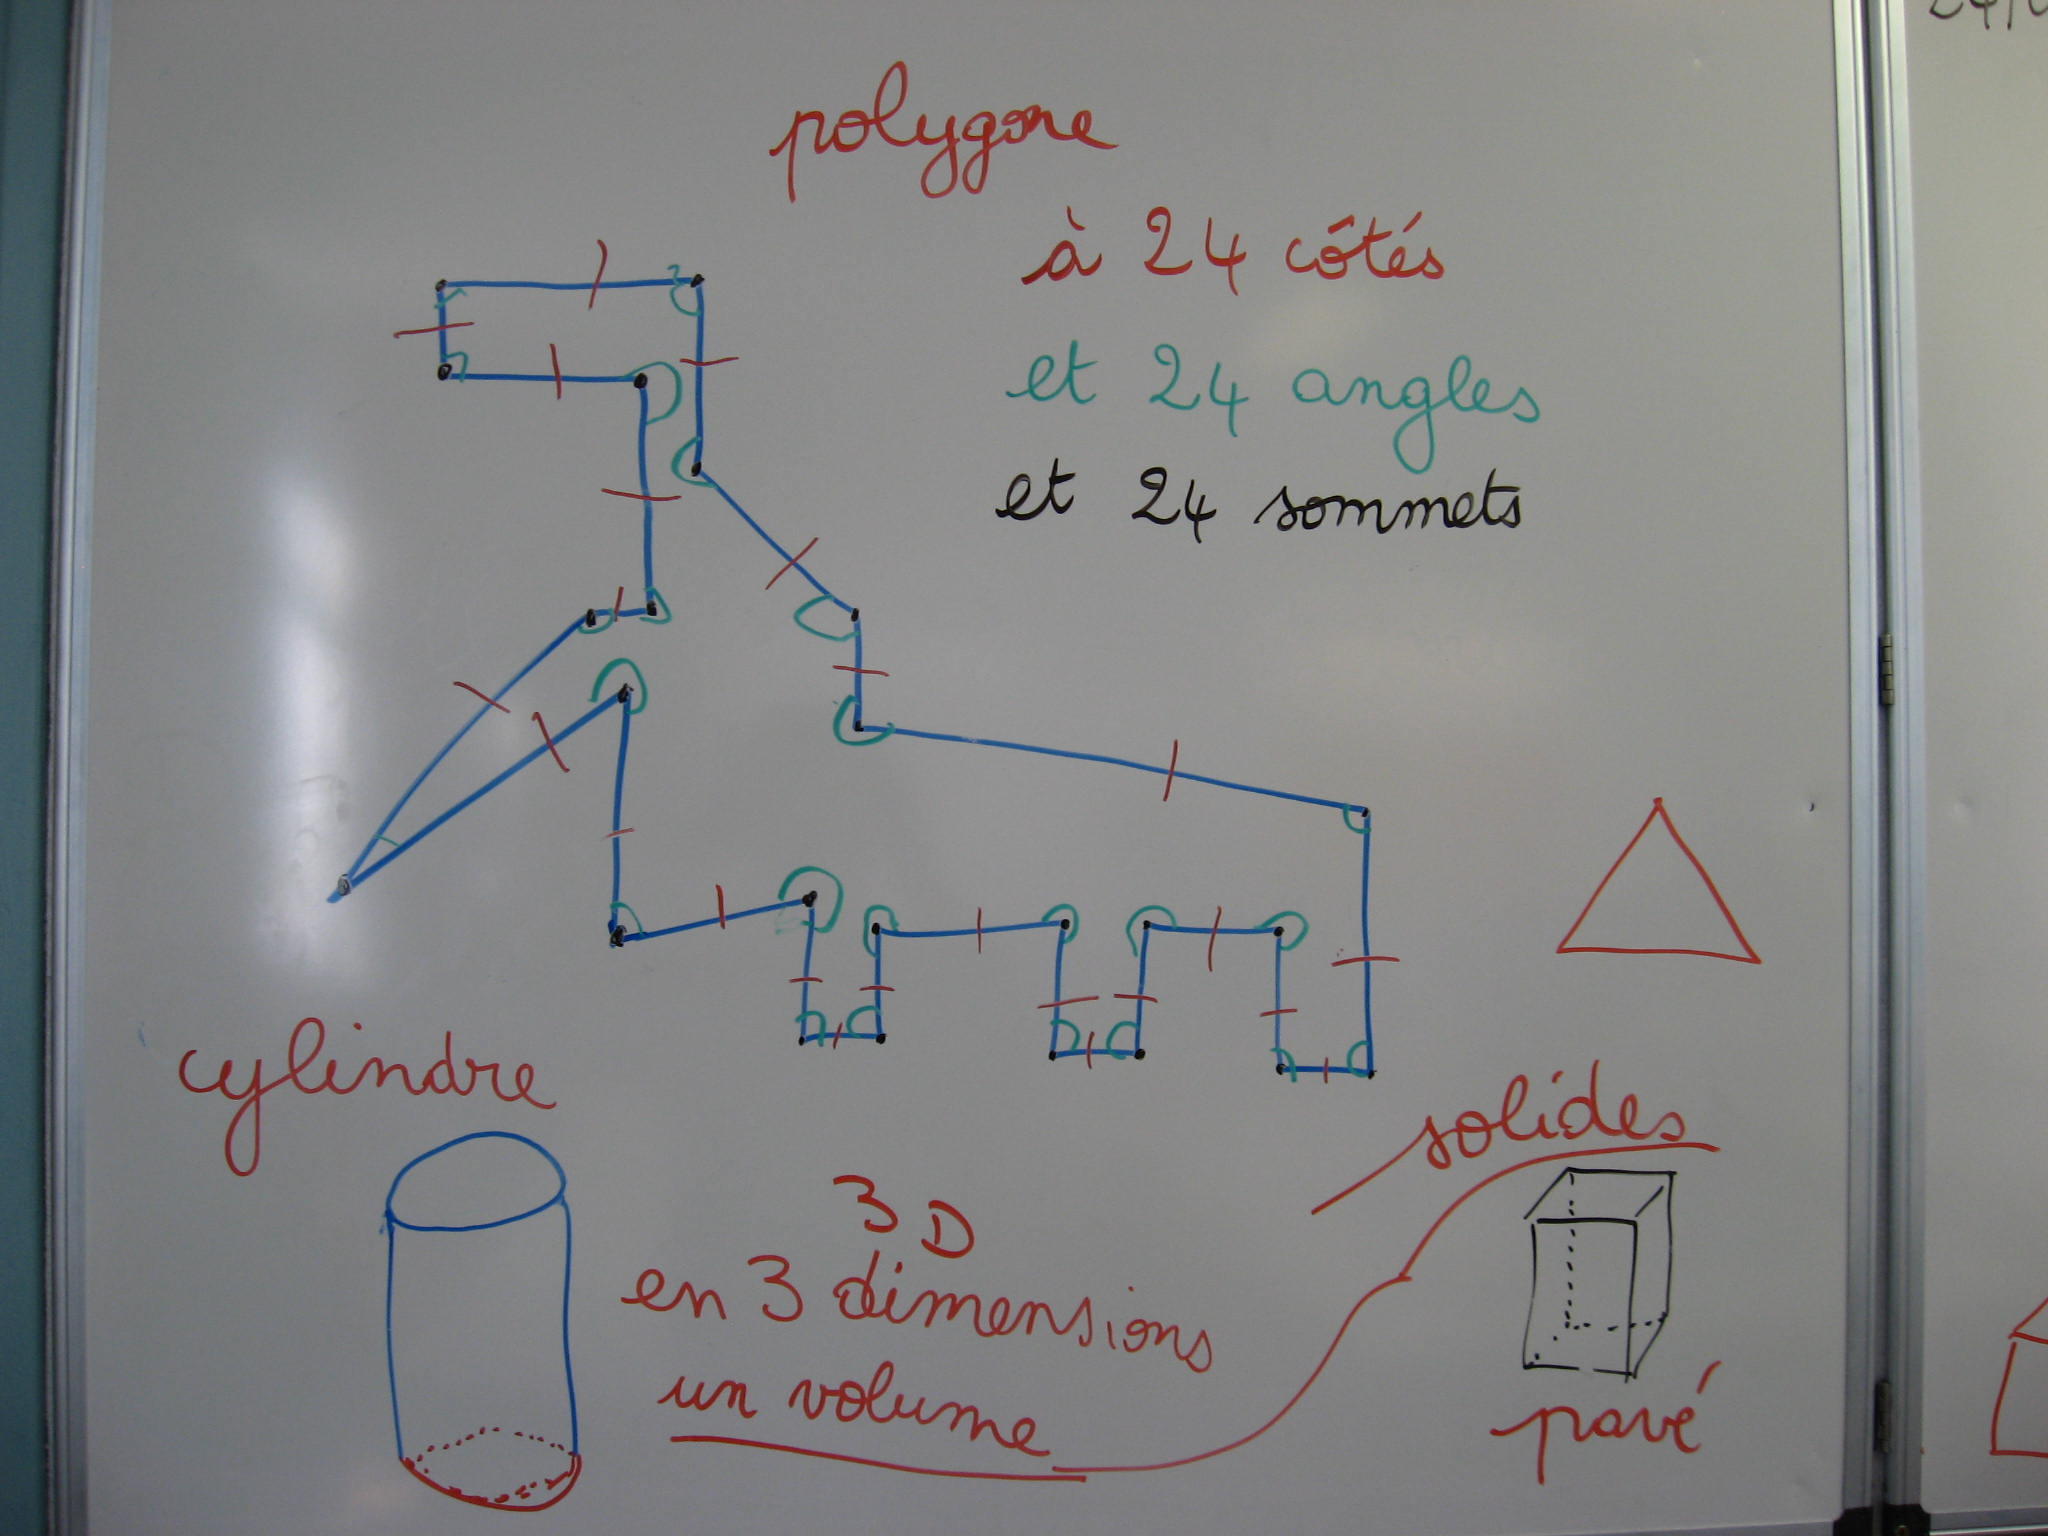 polygone
à 24 côtés
et 24 angles
et 24 sommets
cylindre
solides
3D
en 3 dimensions
un volume
pavé